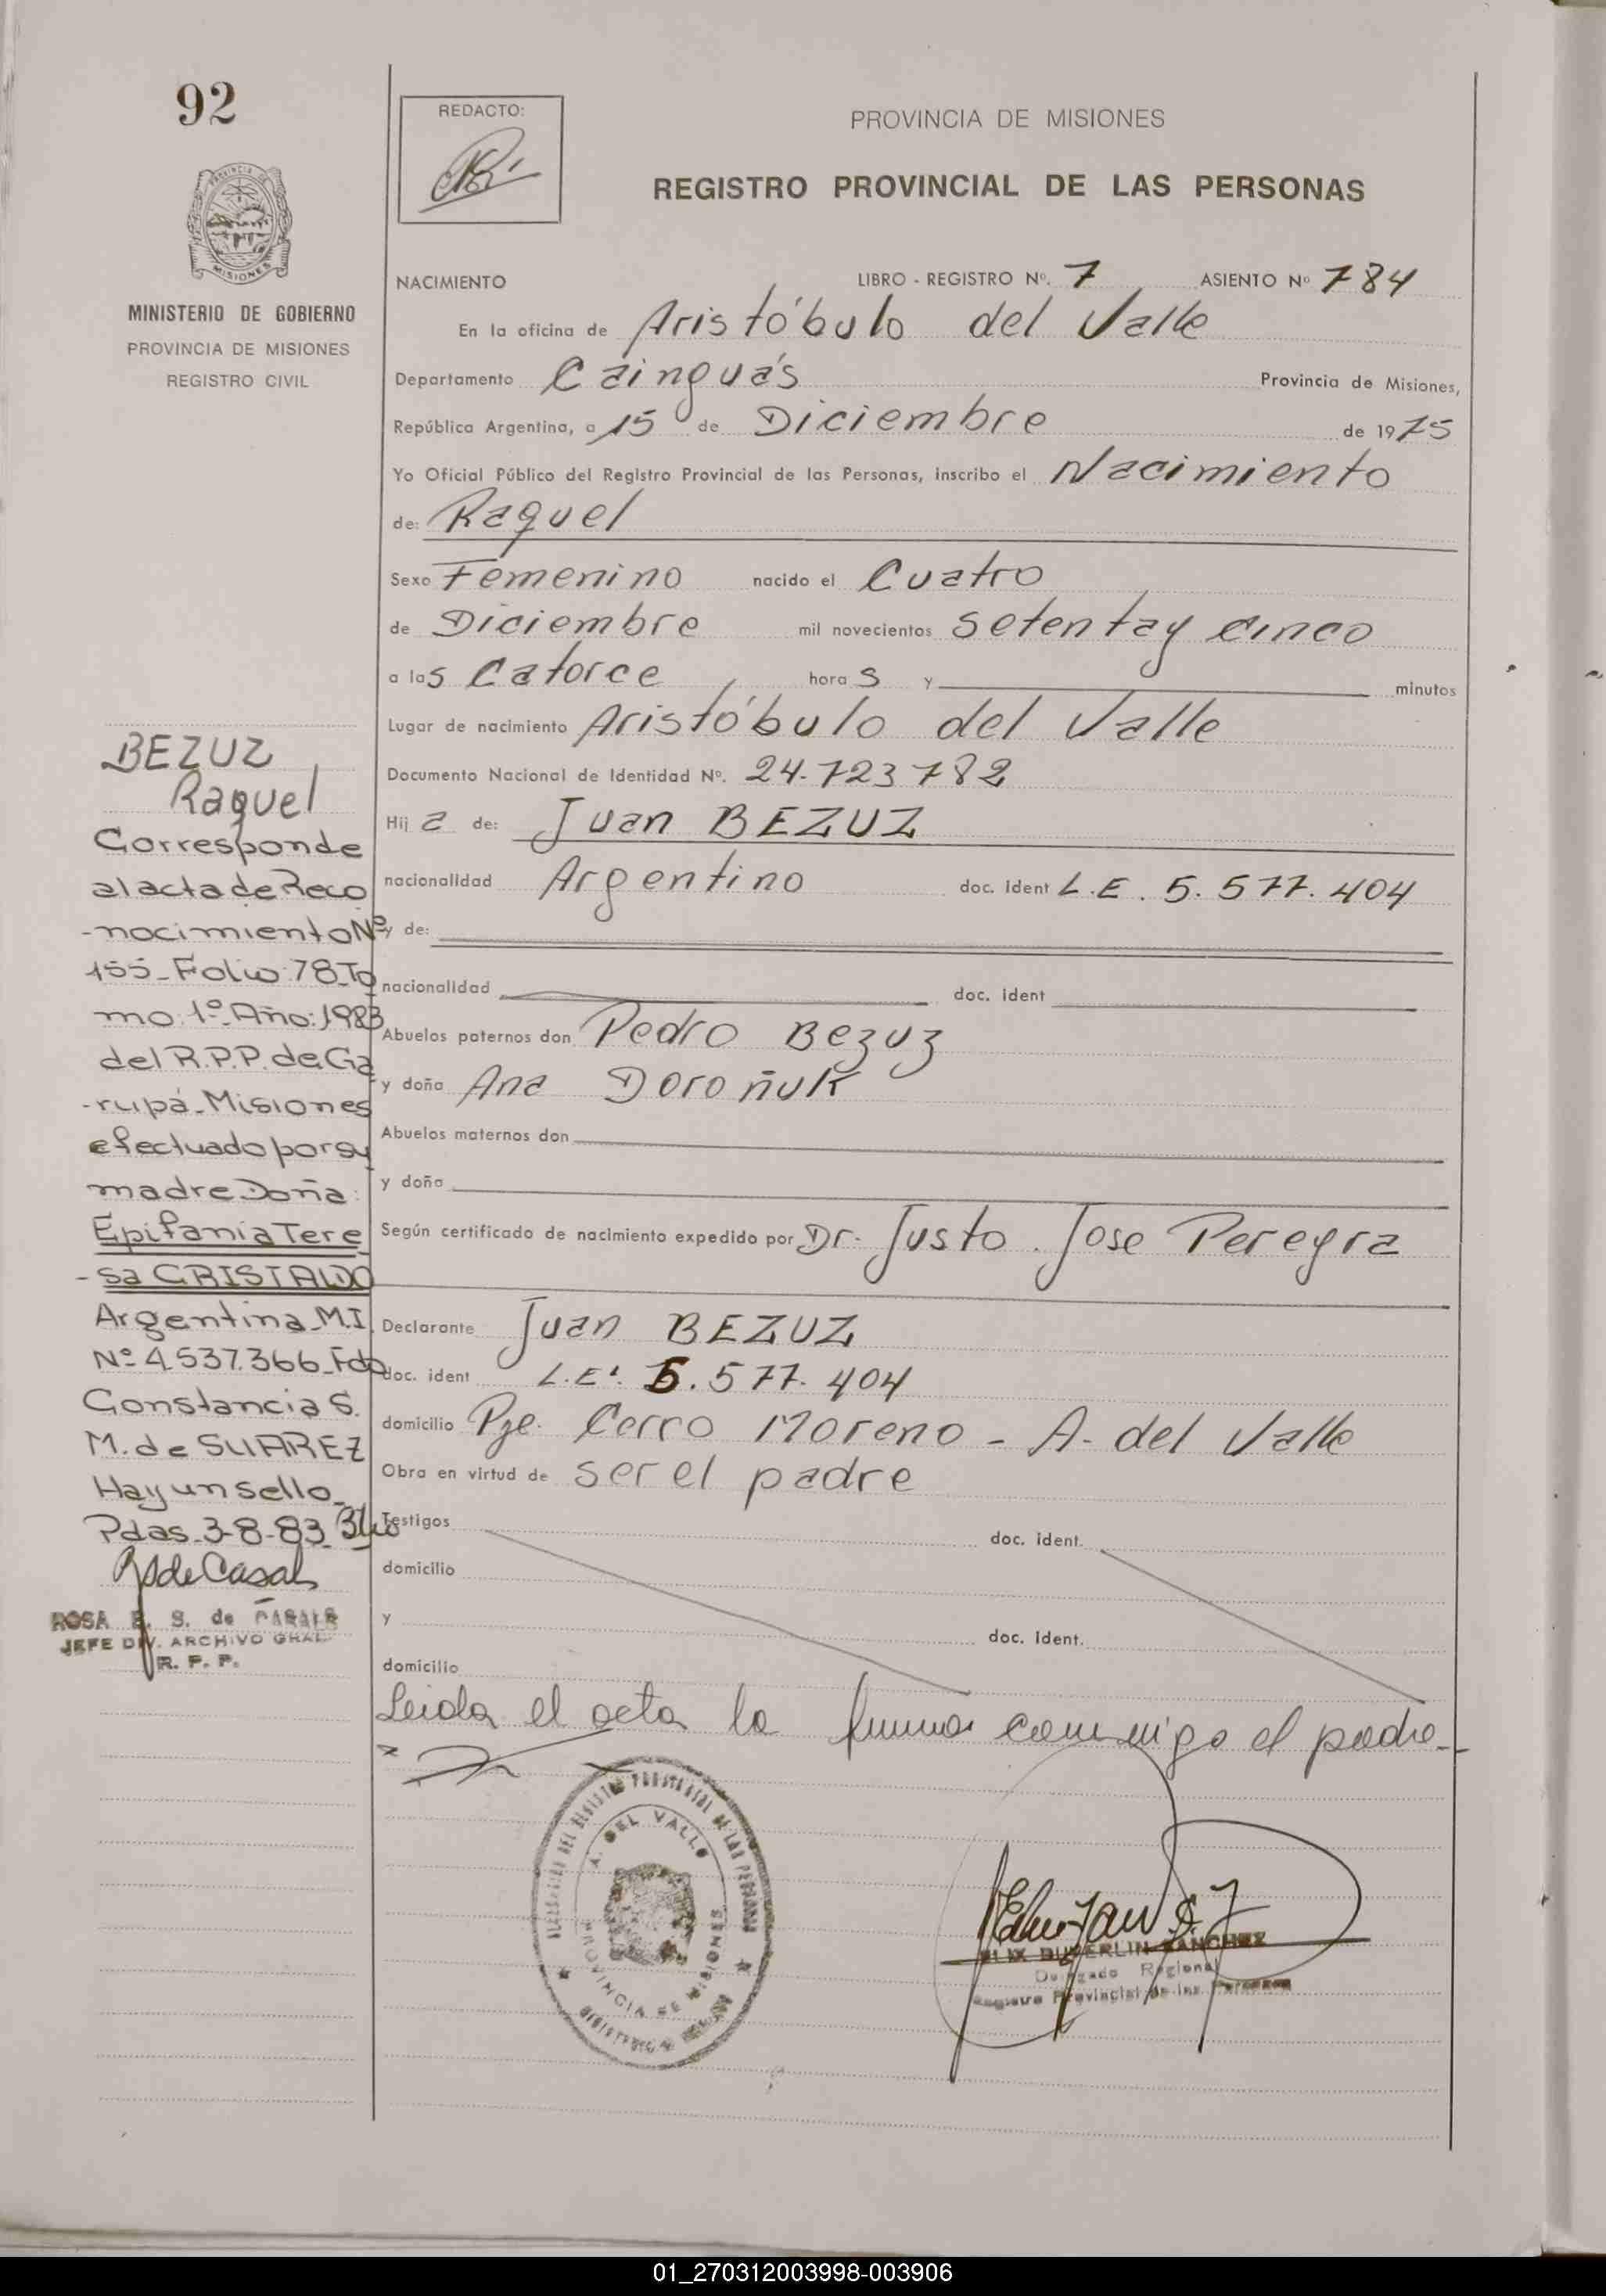 92
REDACTO:
PROVINCIA DE MISIONES
REGISTRO PROVINCIAL DE LAS PERSONAS
MISIONES
MINISTERIO DE GOBIERNO
PROVINCIA DE MISIONES
REGISTRO CIVIL
NACIMIENTO LIBRO - REGISTRO Nº. 7 ASIENTO Nº 784
En la oficina de Aristóbulo del Valle
Departamento Cainguás Provincia de Misiones,
República Argentina, a 15 de Diciembre de 1975
Yo Oficial Público del Registro Provincial de las Personas, inscribo el Nacimiento
de: Raquel
Sexo Femenino nacido el Cuatro
de Diciembre mil novecientos setenta y cinco
a las Catorce horas y minutos
Lugar de nacimiento Aristóbulo del Valle
Documento Nacional de Identidad Nº. 24.723782
Hija de: Juan BEZUZ
nacionalidad Argentino doc. ident L.E. 5.577.404
y de:
nacionalidad doc. ident
Abuelos paternos don Pedro Bezuz
y doña Ana Doroñuk
Abuelos maternos don
y doña
Según certificado de nacimiento expedido por Dr. Justo Jose Pereyra
Declarante Juan BEZUZ
doc. ident L.E. 5.577.404
domicilio Pje. Cerro Moreno - A. del Valle
Obra en virtud de ser el padre
Testigos doc. ident.
domicilio
y doc. ident.
domicilio
Leida el acta la firma conmigo el padre.
BEZUZ
Raquel
Corresponde
al acta de Reco
-nocimiento Nº
155-Folio:78-To
mo:1º-Año:1983
del R.P.P. de Ga
-rupá-Misiones
efectuado por su
madre Doña:
Epifania Tere
-sa CRISTALDO
Argentina M.I.
Nº 4.537.366-Fdo
Constancia S.
M. de SUAREZ
Hay un sello-
Pdas.3-8-83
ROSA E. S. de CASALS
JEFE DIV. ARCHIVO GRAL.
R. P. P.
A. DEL VALLE
PROVINCIA DE MISIONES
SANCHEZ
Delegado Regional
Registro Provincial de las Personas
01_270312003998-003906